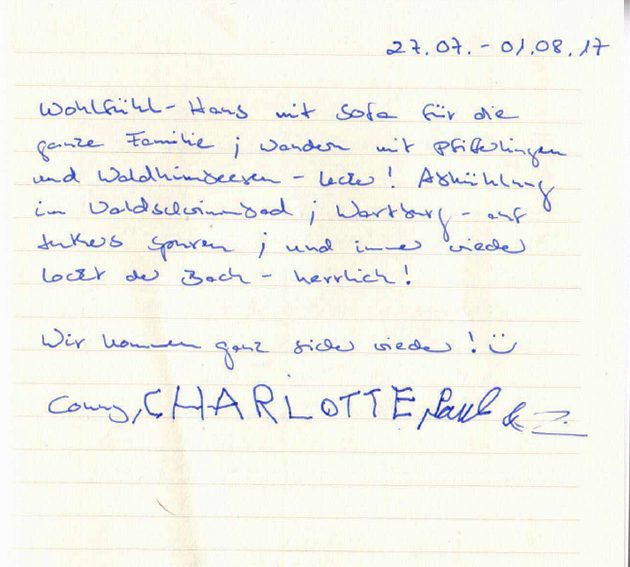 27.07. - 01.08.17
Wohlfühl-Haus mit Sofa für die
ganze Familie ; Wandern mit Pfifferlingen
und Waldhimbeeren - lecker! Abkühlung
im Waldschwimmbad ; Wartburg - auf
Luthers Spuren ; und immer wieder
lockt der Bach - herrlich!
Wir kommen ganz sicher wieder! ☺
Conny, CHARLOTTE, Paul &